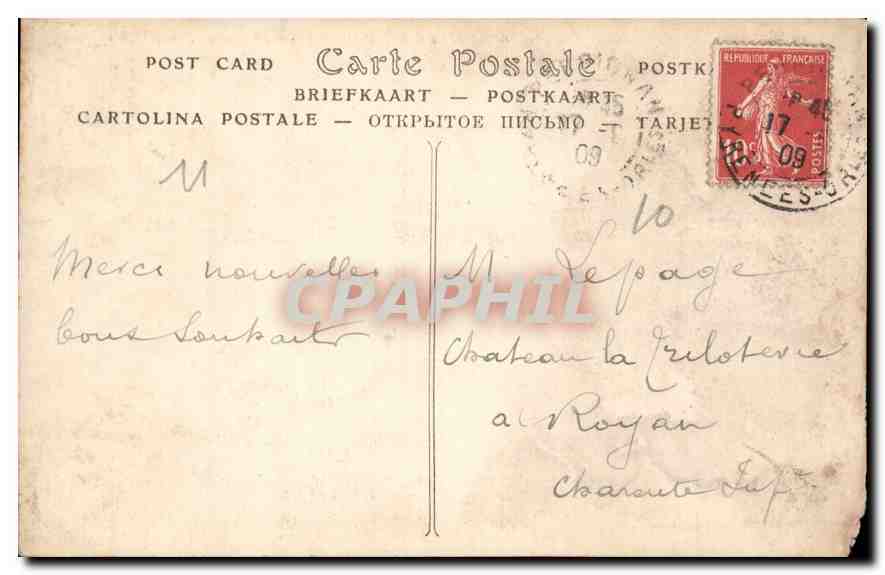 POST CARD Carte Postale POSTK
BRIEFKAART — POSTKAART
CARTOLINA POSTALE — ОТКРЫТОЕ ПИСЬМО — TARJET
REPUBLIQUE FRANÇAISE
10c
POSTES
45
09
45
17
09
11
10
Merci nouvelles
bons souhaits
M Lepage
Chateau la
a Royan
Charente Infre
CPAPHIL